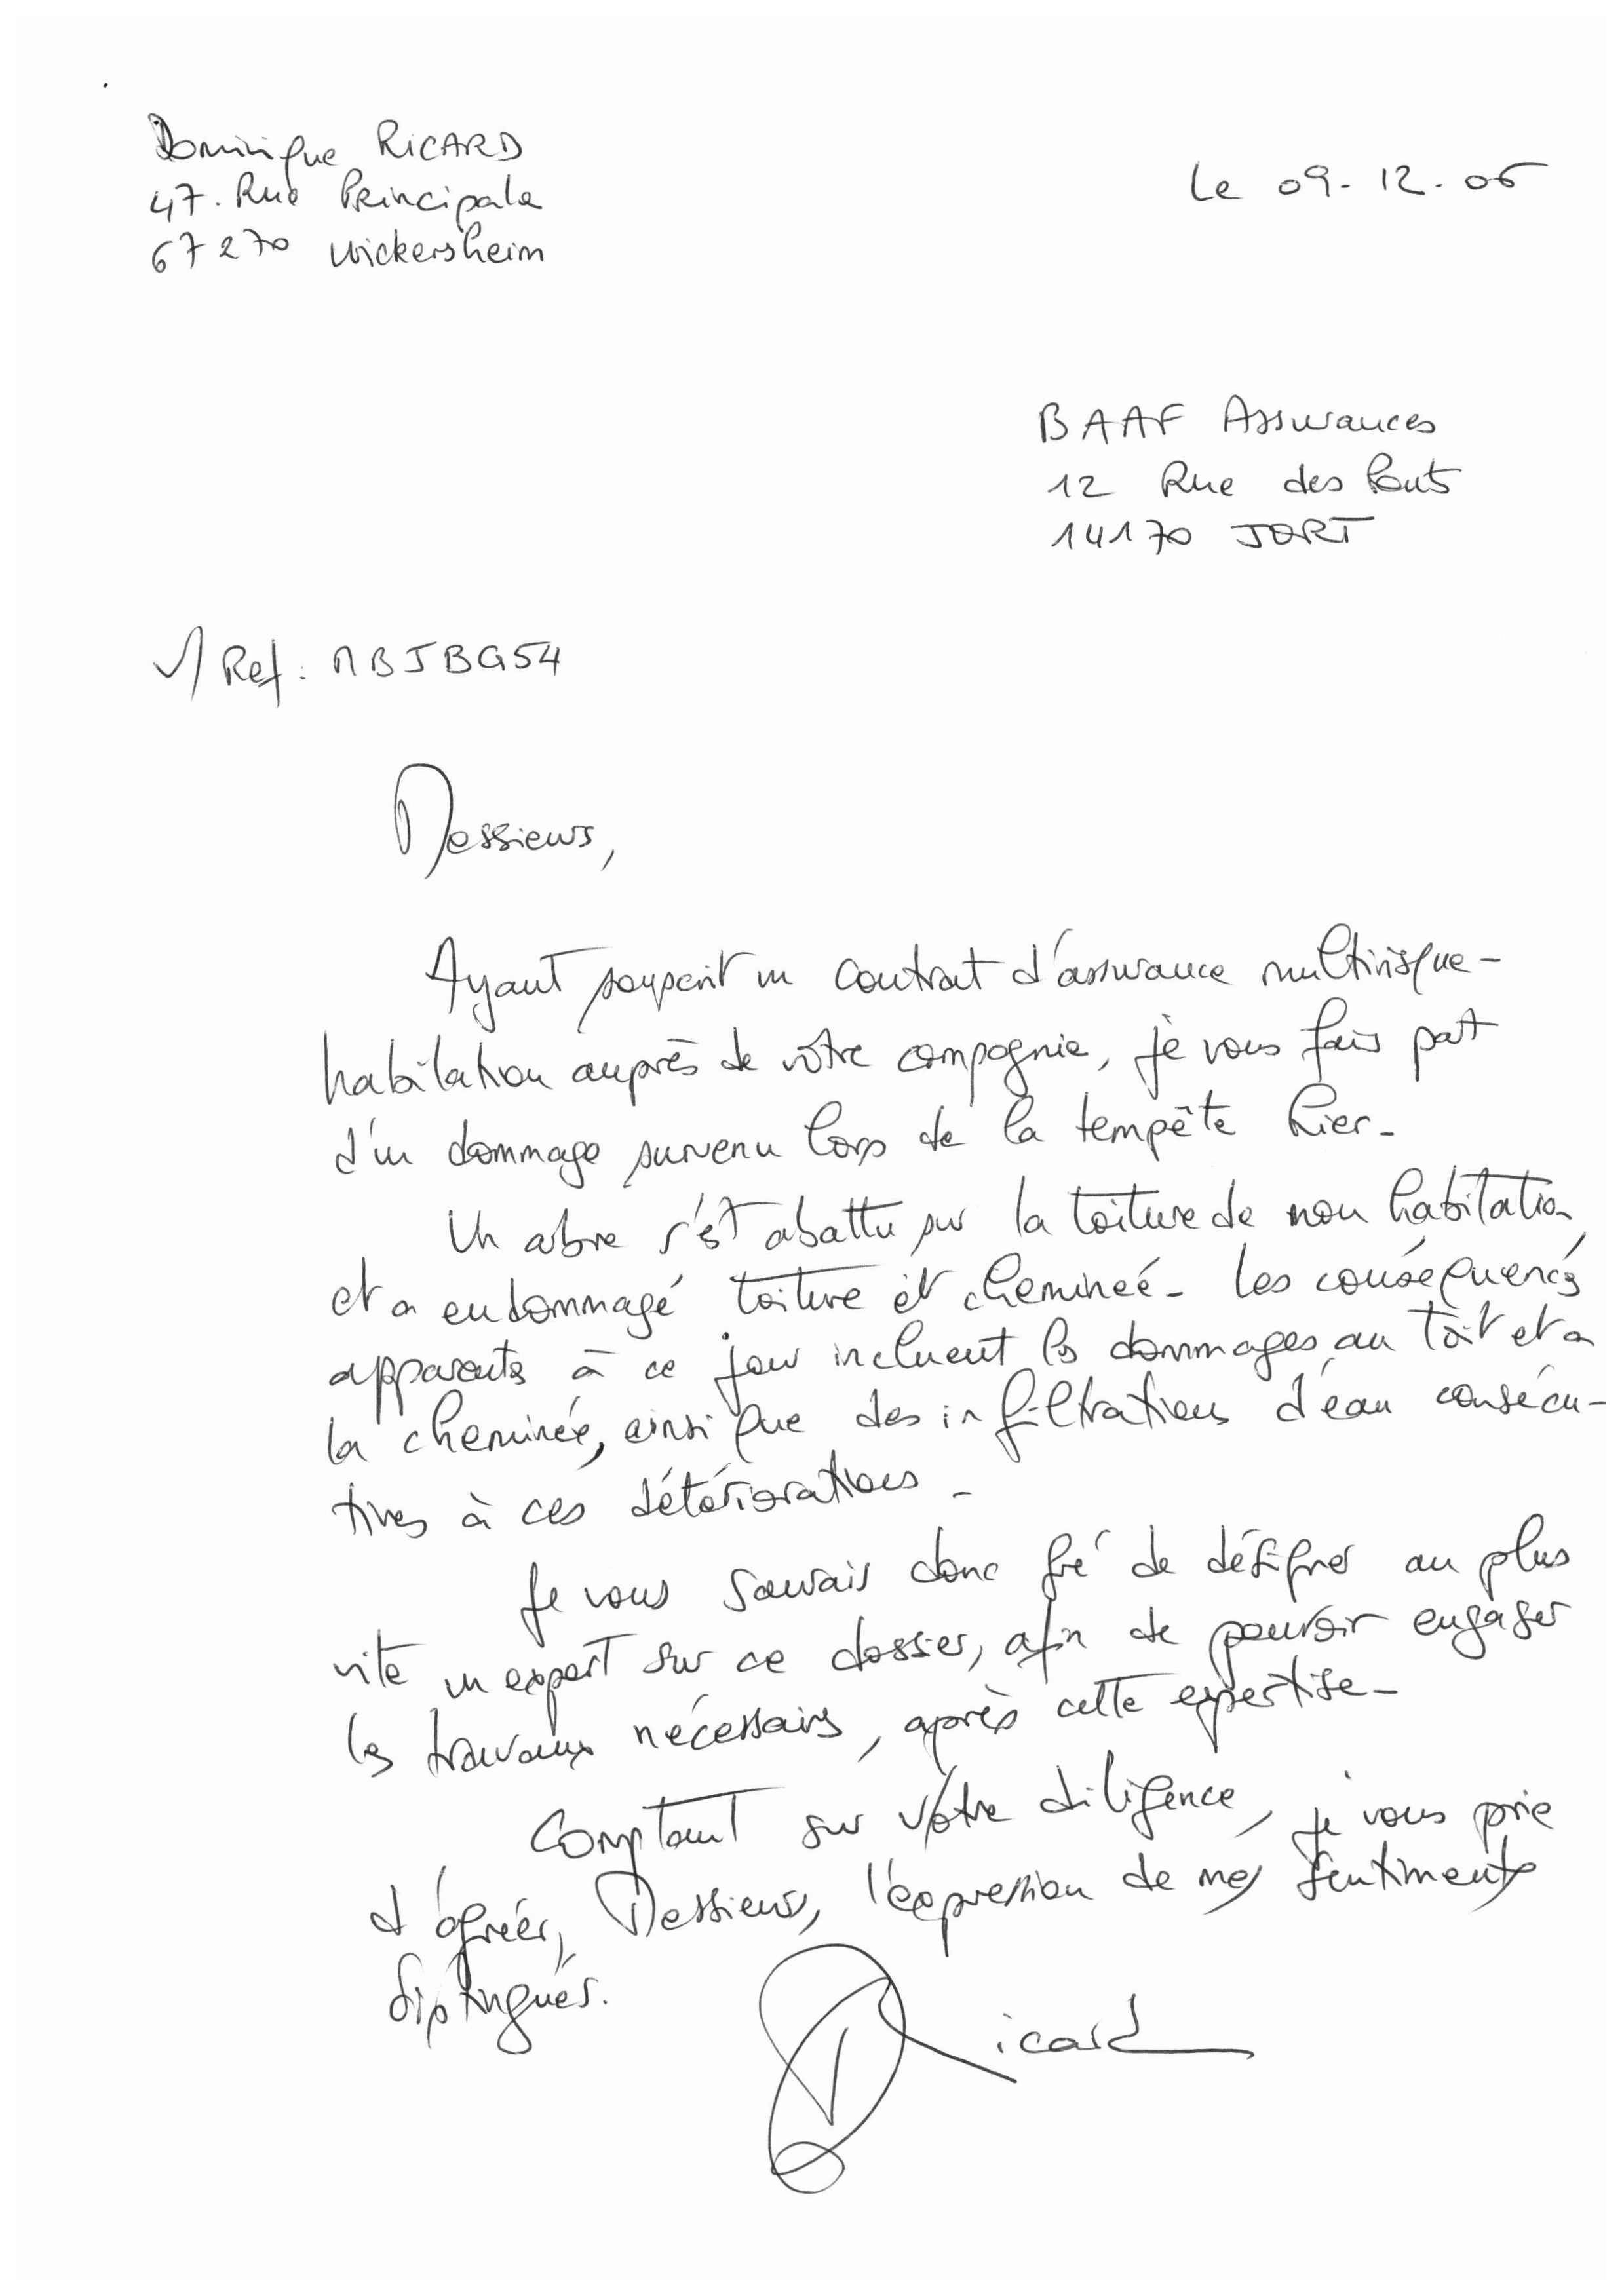 Dominique RICARD
47. Rue Principale
67270 Wickersheim
Le 09-12-06
BAAF Assurances
12 Rue des Ponts
14170 JORT
V/Ref: MBJBG54
Messieurs,
Ayant souscrit un contrat d'assurance multirisque-
habitation auprès de votre compagnie, je vous fais part
d'un dommage survenu lors de la tempête hier-
Un arbre s'est abattu sur la toiture de mon habitation
et a endommagé toiture et cheminée- Les conséquences
apparents à ce jour incluent les dommages au toit et a
la cheminée, ainsi que des infiltrations d'eau consécu-
tives à ces détériorations-
Je vous saurais donc gré de désigner au plus
vite un expert sur ce dossier, afin de pouvoir engager
les travaux nécessaires, après cette expertise-
Comptant sur votre diligence, je vous prie
d'agréer, Messieurs, l'expression de mes sentiments
distingués.
Ricard